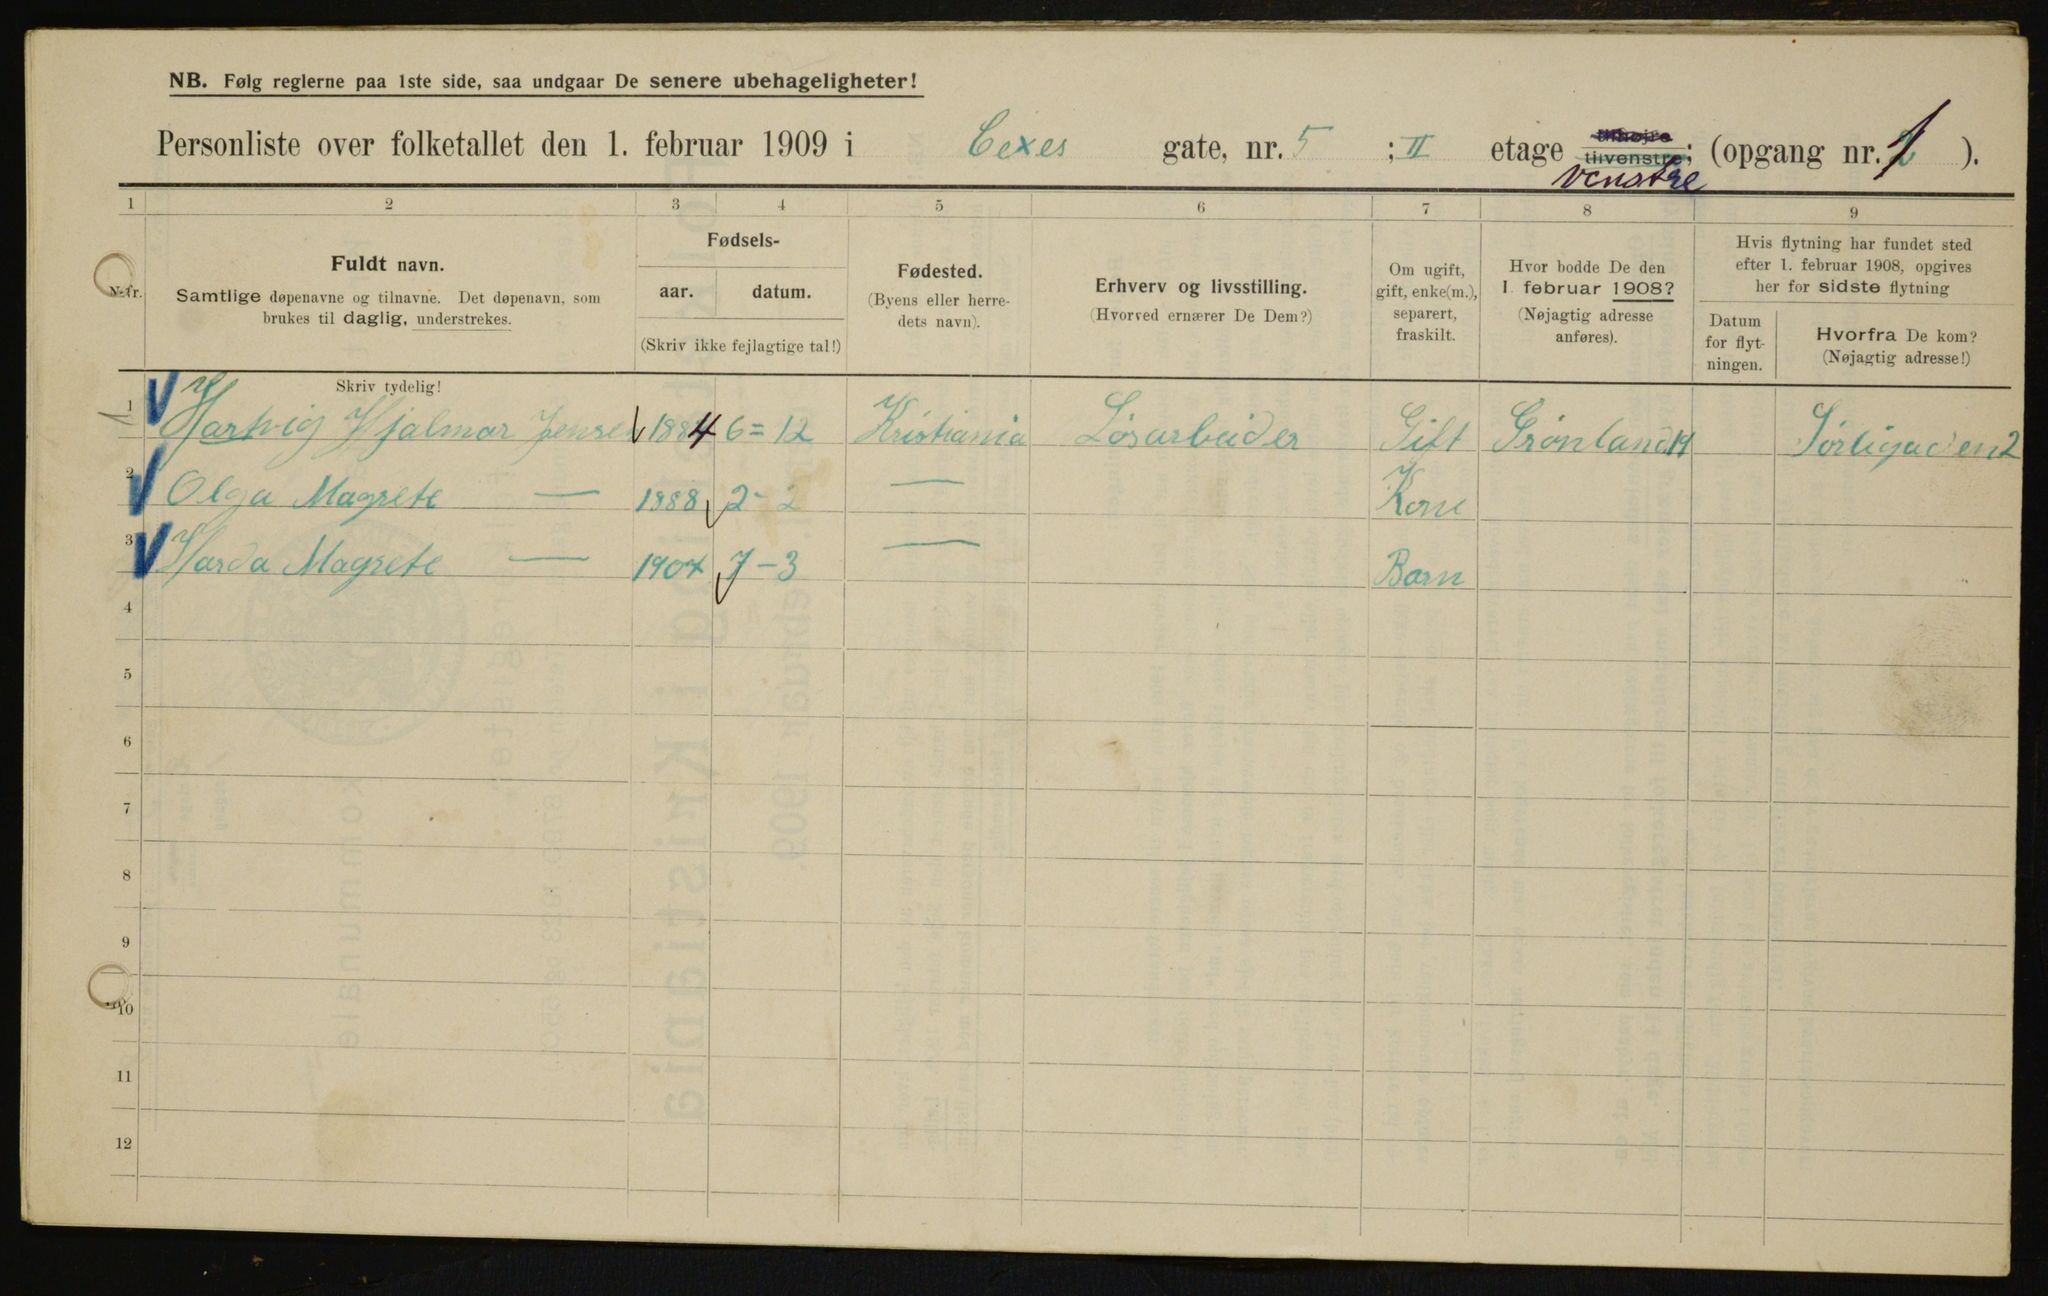 NB. Følg reglerne paa 1ste side, saa undgaar De senere ubehageligheter!
Personliste over folketallet den 1. februar 1909 i Cexes gate, nr. 5 ; II etage tilvenstre; (opgang nr. 1 ).
venstre
1 2 3 4 5 6 7 8 9
Nr. Fuldt navn. Samtlige døpenavne og tilnavne. Det døpenavn, som brukes til daglig, understrekes.
Fødsels- aar. datum. (Skriv ikke fejlagtige tal!)
Fødested. (Byens eller herredets navn).
Erhverv og livsstilling. (Hvorved ernærer De Dem?)
Om ugift, gift, enke(m.), separert, fraskilt.
Hvor bodde De den 1. februar 1908? (Nøjagtig adresse anføres).
Hvis flytning har fundet sted efter 1. februar 1908, opgives her for sidste flytning
Datum for flytningen.
Hvorfra De kom? (Nøjagtig adresse!)
Skriv tydelig!
1 Hartvig Hjalmar Jensen 1884 6=12 Kristiania Løsarbeider Gift Grønland 14 Sørligaden 2
2 Olga Magrete — 1888 2-2 — Kone
3 Harda Magrete — 1907 7-3 — Barn
4
5
6
7
8
9
10
11
12